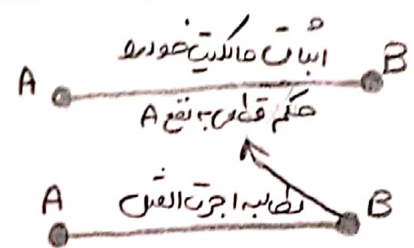 اثبات مالکیت خودرو
A B
حکم قطعی به نفع A
مطالبه اجرت المثل
A B